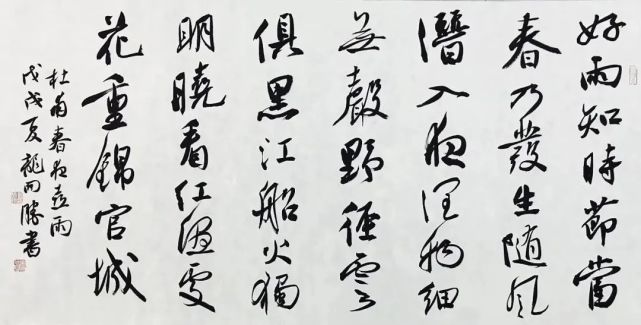 好雨知時節當
春乃發生随風
潛入夜潤物細
無聲野徑雲
俱黑江船火獨
明曉看紅濕處
花重錦官城
杜甫春夜喜雨
戊戌夏龍勝書